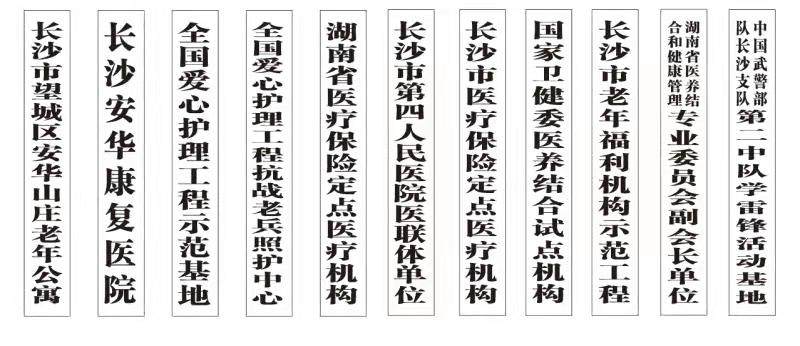 长沙市望城区安华山庄老年公寓
长沙安华康复医院
全国爱心护理工程示范基地
全国爱心护理工程抗战老兵照护中心
湖南省医疗保险定点医疗机构
长沙市第四人民医院医联体单位
长沙市医疗保险定点医疗机构
国家卫健委医养结合试点机构
长沙市老年福利机构示范工程
湖南省医养结合和健康管理专业委员会副会长单位
中国武警部队长沙支队第二中队学雷锋活动基地